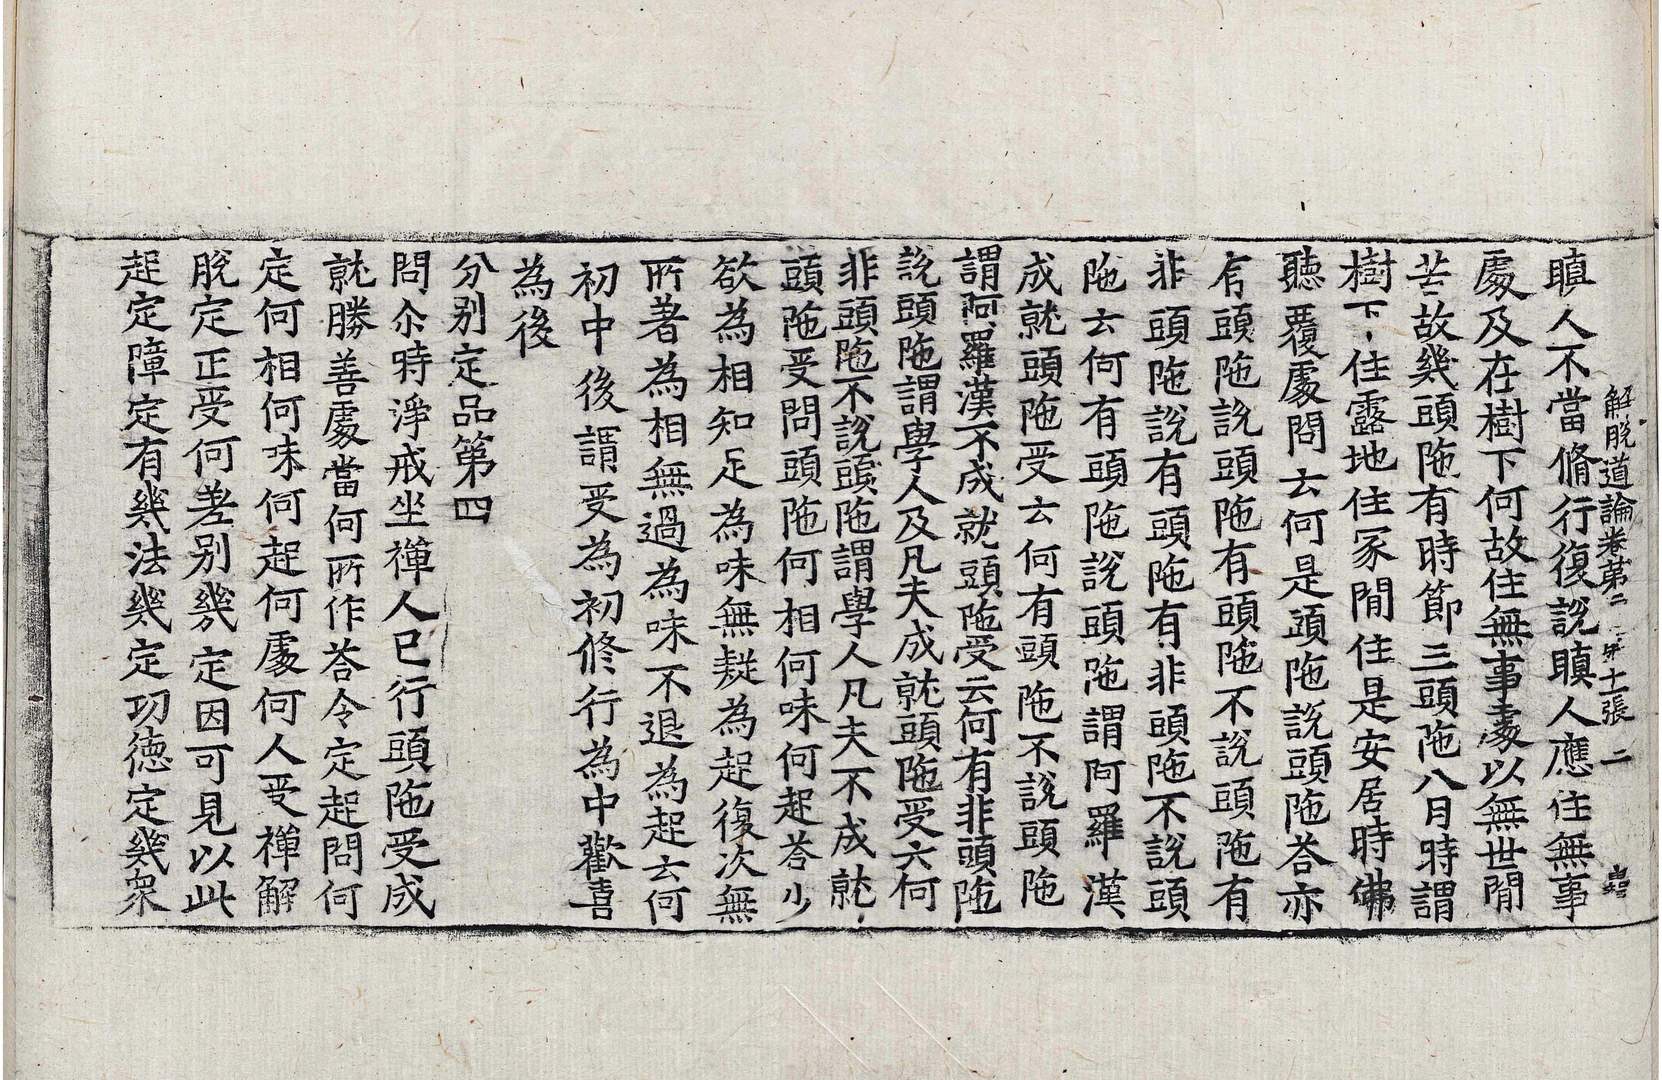 解脫道論卷第二 第十張 二
瞋人不當脩行復說瞋人應住無事
處及在樹下何故住無事處以無世閒
苦故幾頭陁有時節三頭陁八月時謂
樹下住露地住冢閒住是安居時佛
聽覆處問云何是頭陁說頭陁荅亦
有頭陁說頭陁有頭陁不說頭陁有
非頭陁說有頭陁有非頭陁不說頭
陁云何有頭陁說頭陁謂阿羅漢
成就頭陁受云何有頭陁不說頭陁
謂阿羅漢不成就頭陁受云何有非頭陁
說頭陁謂學人及凡夫成就頭陁受云何
非頭陁不說頭陁謂學人凡夫不成就
頭陁受問頭陁何相何味何起荅少
欲為相知足為味無疑為起復次無
所著為相無過為味不退為起云何
初中後謂受為初修行為中歡喜
為後
分別定品第四
問尒時淨戒坐禪人已行頭陁受成
就勝善處當何所作荅令定起問何
定何相何味何起何處何人受禪解
脫定正受何差別幾定因可見以此
起定障定有幾法幾定功德定幾衆